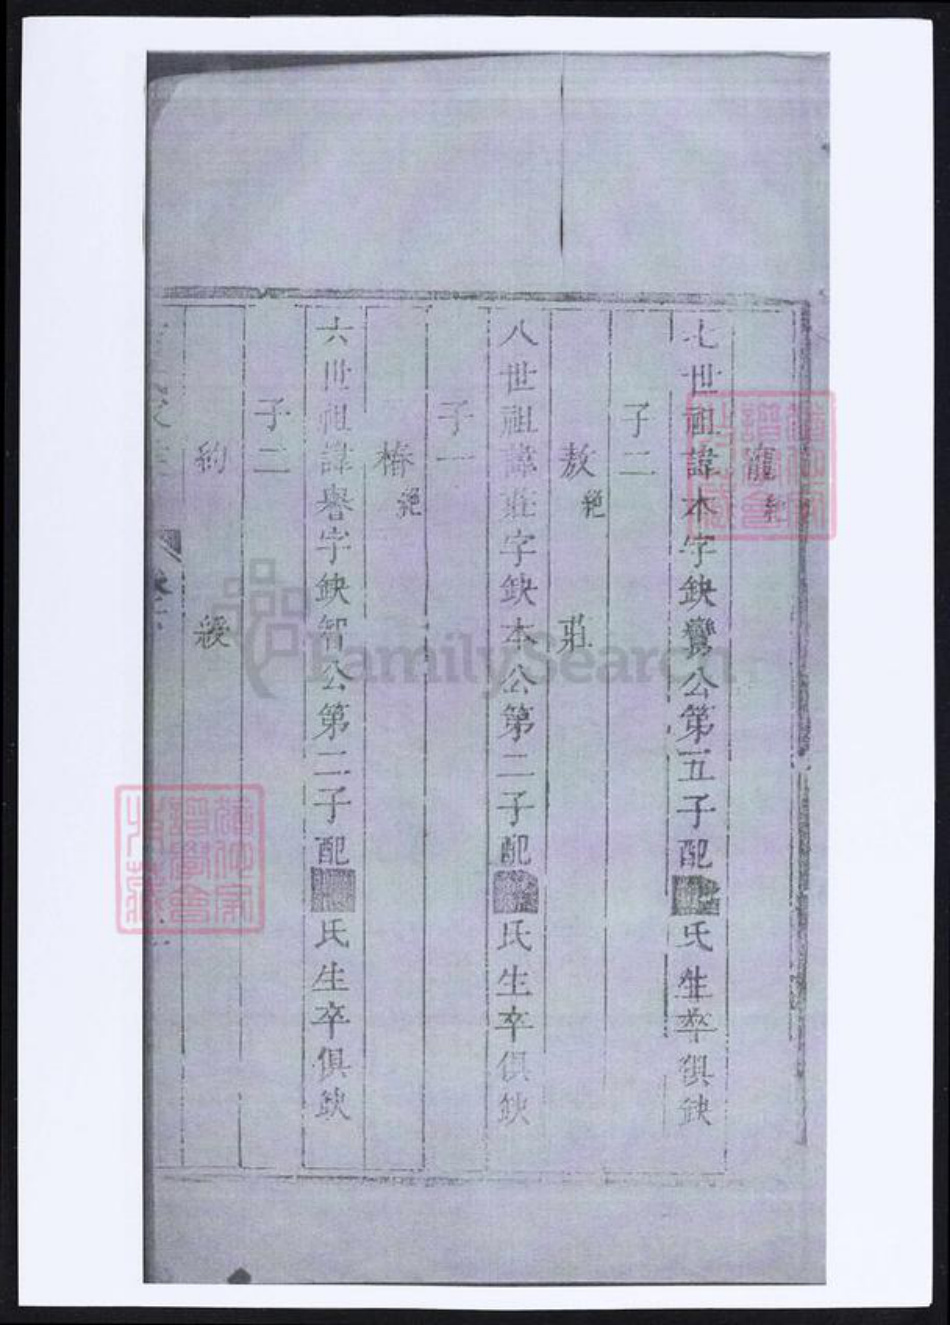 寵絕
七世祖諱本字缺鸞公第五子配
氏生卒俱缺
子二
敖絕 莊
八世祖諱莊字缺本公第二子配
氏生卒俱缺
子一
椿絕
六世祖諱譽字缺智公第二子配
氏生卒俱缺
子二
約 綬
FamilySearch